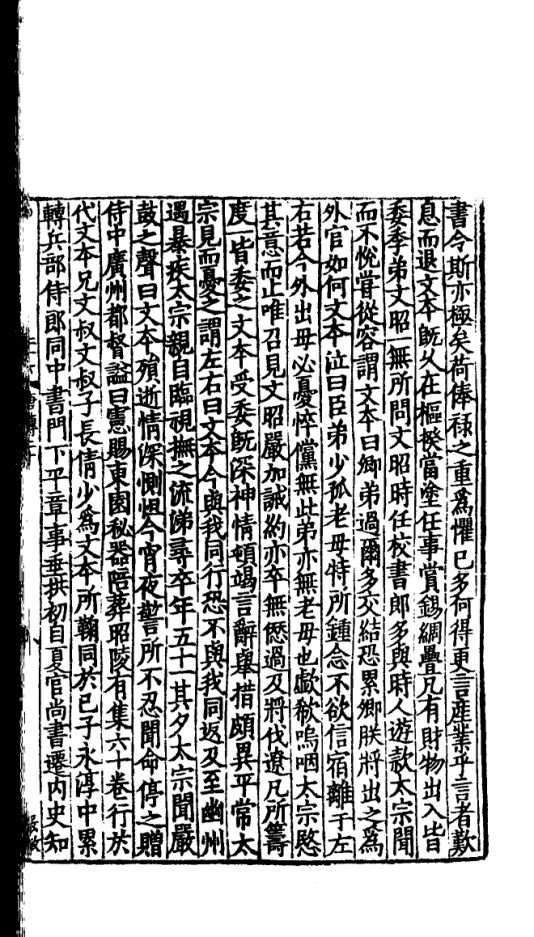 書令斯亦極矣荷俸祿之重爲懼已多何得更言産業乎言者歎
息而退文本旣久在樞揆當塗任事賞錫綢疊凡有財物出入皆
委季弟文昭一無所問文昭時任校書郎多與時人遊款太宗聞
而不悅嘗從容謂文本曰卿弟過爾多交結恐累卿朕將出之爲
外官如何文本泣曰臣弟少孤老母特所鍾念不欲信宿離于左
右若今外出母必憂悴儻無此弟亦無老母也歔欷嗚咽太宗愍
其意而止唯召見文昭嚴加誡約亦卒無愆過及將伐遼凡所籌
度一皆委之文本受委旣深神情頓竭言辭舉措頗異平常太
宗見而憂之謂左右曰文本今與我同行恐不與我同返及至幽州
遇暴疾太宗親自臨視撫之流涕尋卒年五十一其夕太宗聞嚴
鼓之聲曰文本殞逝情深惻怛今宵夜警所不忍聞命停之贈
侍中廣州都督謚曰憲賜東園秘器陪葬昭陵有集六十卷行於
代文本兄文叔文叔子長倩少爲文本所鞠同於已子永淳中累
轉兵部侍郎同中書門下平章事垂拱初自夏官尚書遷內史知